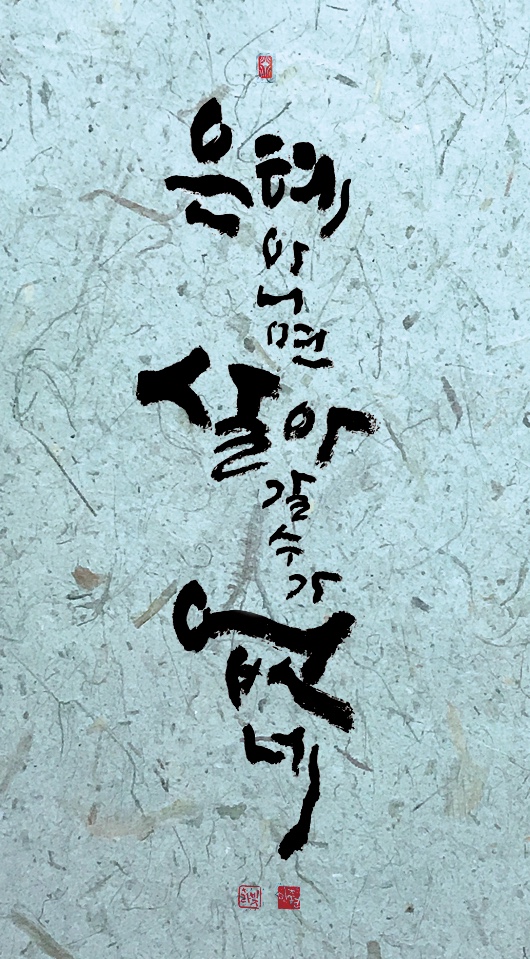 은혜
아
니
면
살아
갈
수
가
없
네